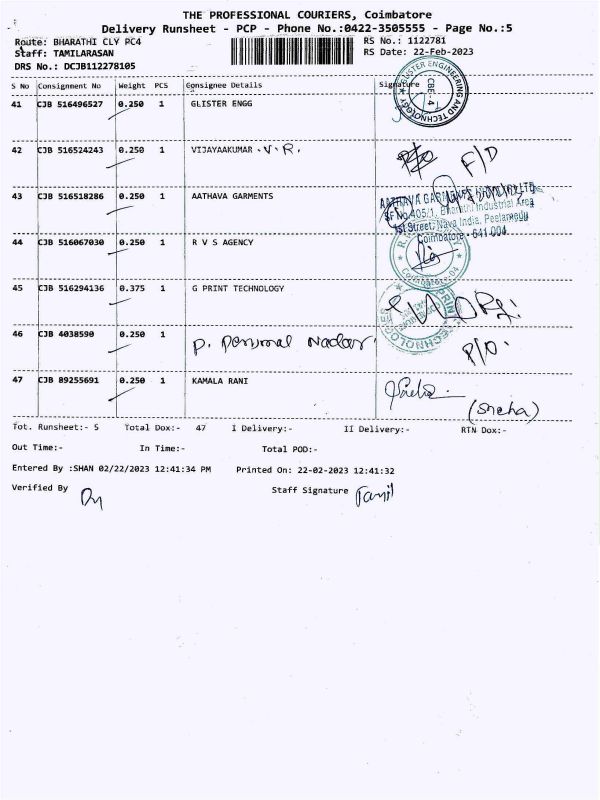 THE PROFESSIONAL COURIERS, Coimbatore
Delivery Runsheet - PCP - Phone No.:0422-3505555 - Page No.:5
Route: BHARATHI CLY PC4
RS No.: 1122781
Staff: TAMILARASAN
RS Date: 22-Feb-2023
DRS No.: DCJB112278105
S No Consignment No Weight PCS Consignee Details Signature
41 CJB 516496527 0.250 1 GLISTER ENGG
GLISTER ENGINEERING AND TECHNOLOGY
CBE-4
42 CJB 516524243 0.250 1 VIJAYAAKUMAR .V.R.
F/D
43 CJB 516518286 0.250 1 AATHAVA GARMENTS
AATHAVA GARMENTS
SF No.405/1, Bharathi Industrial Area
1st Street, Nava India, Peelamedu
Coimbatore - 641 004
44 CJB 516067030 0.250 1 R V S AGENCY
Coimbatore-04
45 CJB 516294136 0.375 1 G PRINT TECHNOLOGY
46 CJB 4038590 0.250 1 P. Perumal Nadar
P/O.
47 CJB 89255691 0.250 1 KAMALA RANI
(Sneha)
Tot. Runsheet:- 5 Total Dox:- 47 I Delivery:- II Delivery:- RTN Dox:-
Out Time:- In Time:- Total POD:-
Entered By :SHAN 02/22/2023 12:41:34 PM Printed On: 22-02-2023 12:41:32
Verified By Staff Signature Tamil